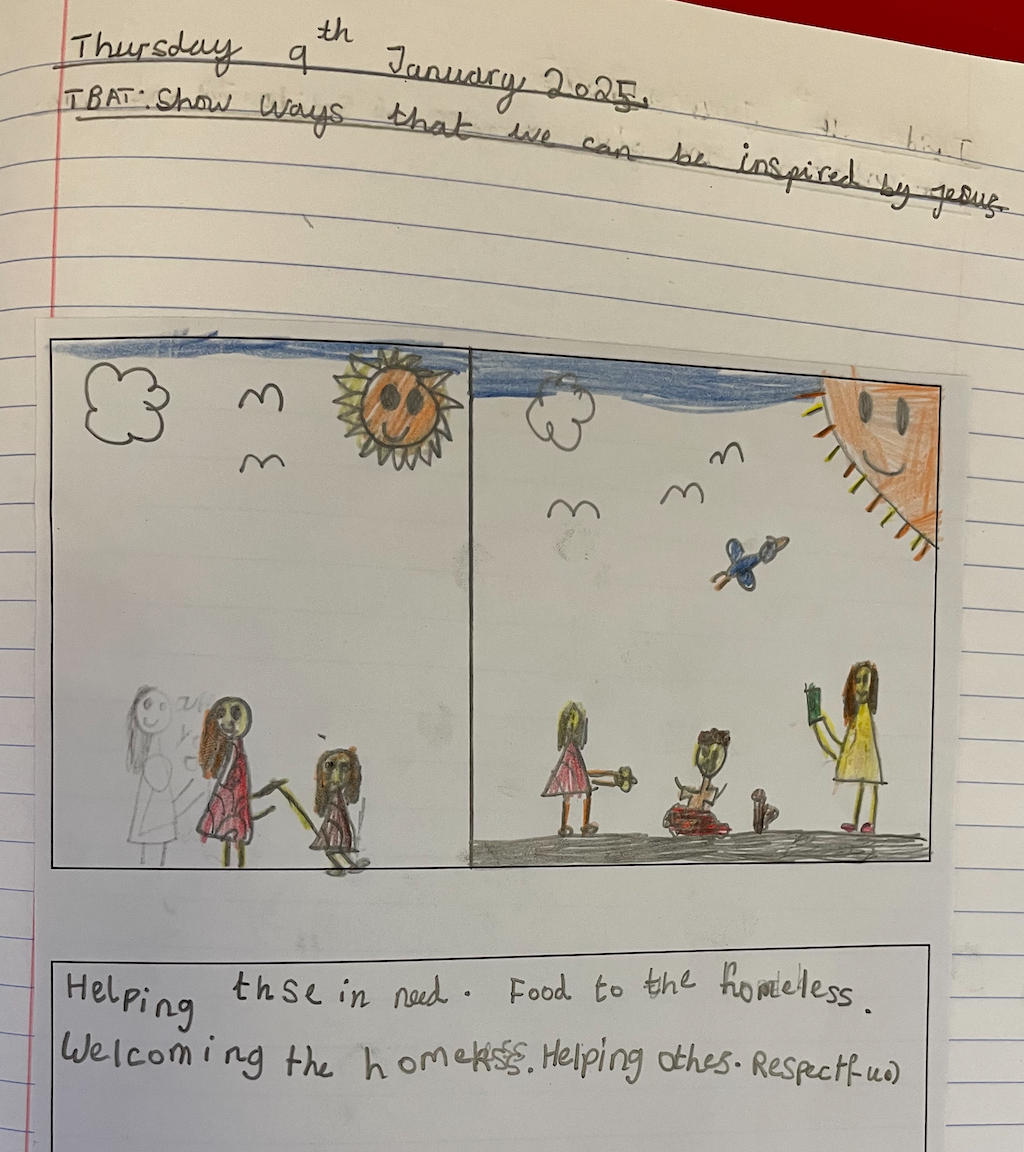 Thursday 9th January 2025.
TBAT: Show ways that we can be inspired by Jesus
Helping thse in need. Food to the homeless.
Welcoming the homeless. Helping othes. Respectful